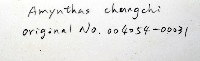 Amynthas chengchi
original No. 004054-00031